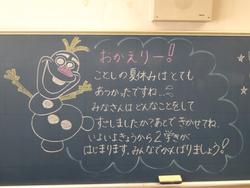 おかえりー!
ことしの夏休みはとても
あつかったですね...
みなさんはどんなことをして
すごしましたか?あとで きかせてね。
いよいよきょうから2学きが
はじまります。みんなでがんばりましょう!